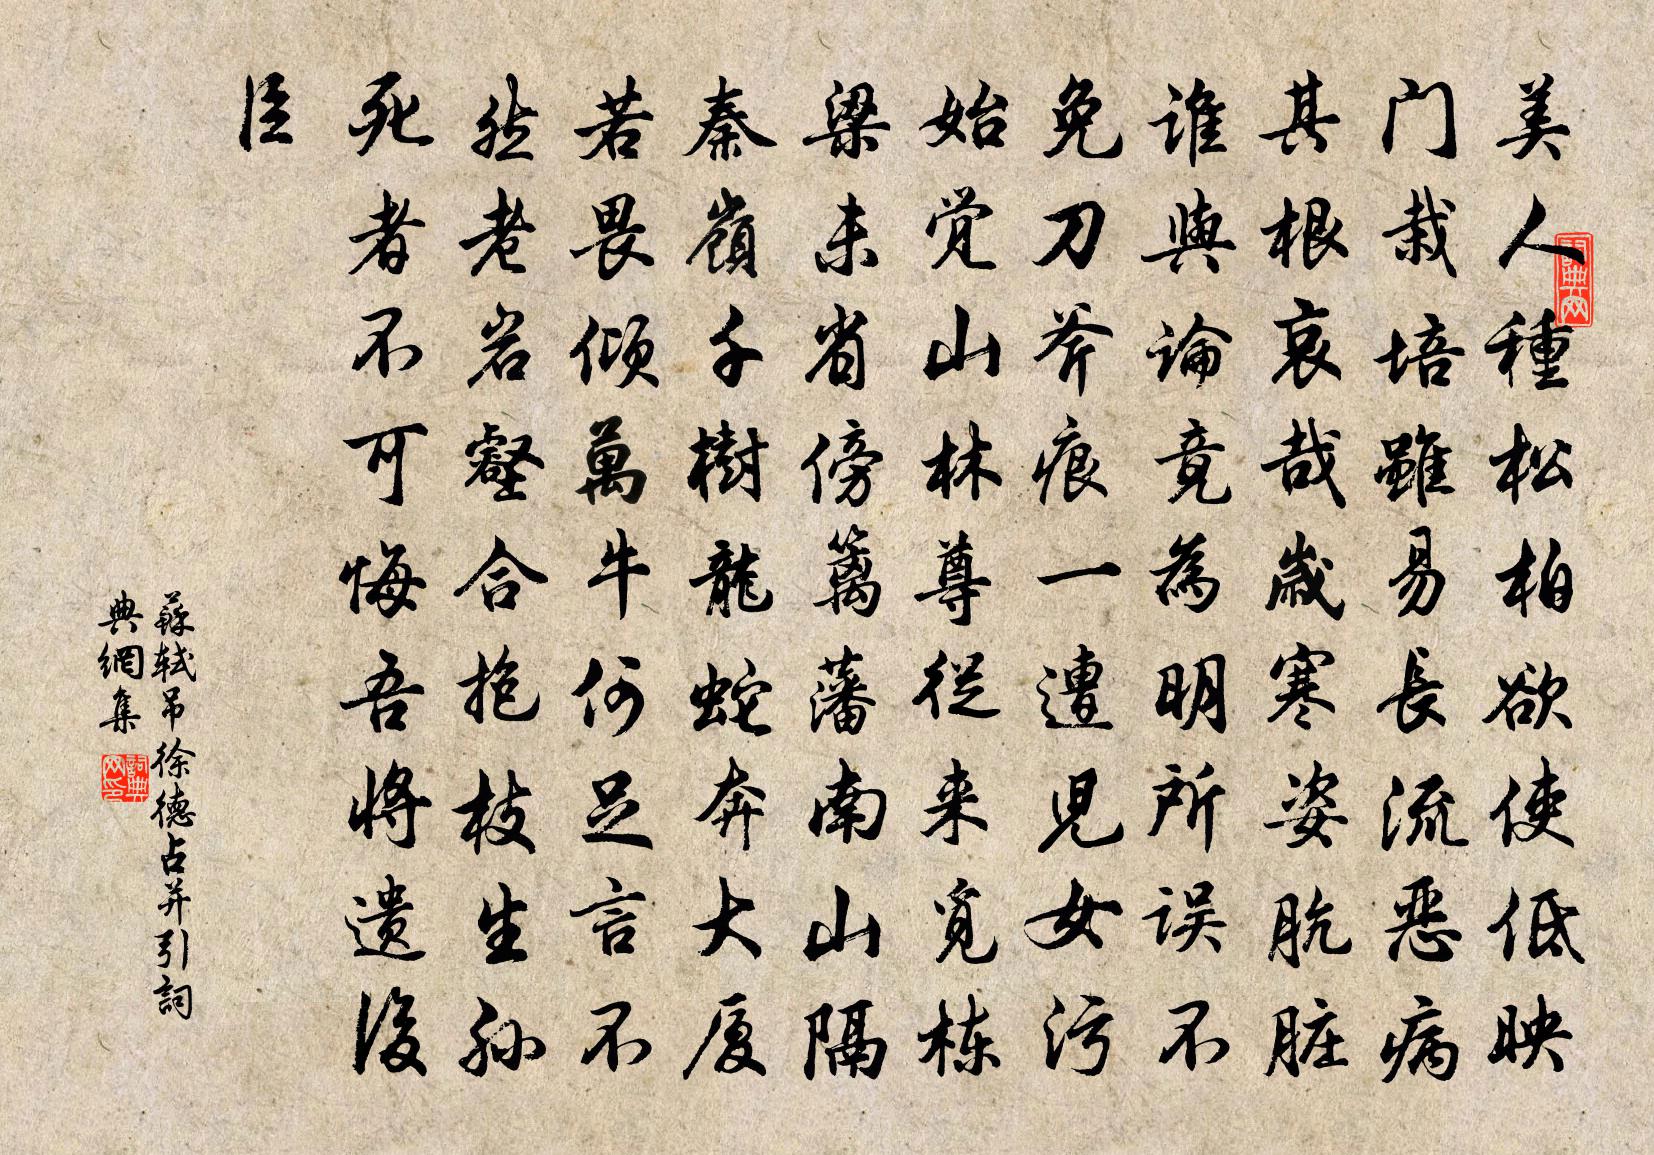 美人種松柏欲使低映
门栽培雖易長流恶病
其根哀哉歲寒姿肮脏
谁與論竟為明所误不
免刀斧痕一遭児女污
始觉山林尊從来覓栋
梁未省傍籬藩南山隔
秦嶺千樹龍蛇奔大厦
若畏倾萬牛何足言不
然老岩壑合抱枝生孙
死者不可悔吾將遗後
臣
蘇軾吊徐德占并引詞
典網集
詞典网
詞典网印